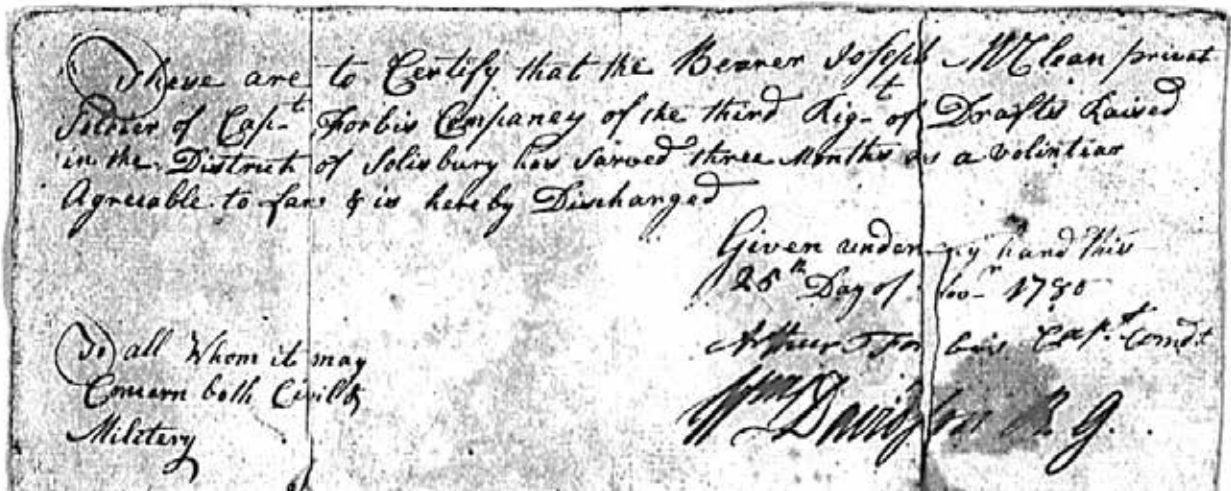 These are to Certify that the Bearer Joseph McClean privat
Soldier of Capt Forbis Companey of the third Rigt of Drafts Raised
in the District of Solisbury has Sarved three Months as a volintiar
Agreeable to & is hereby Discharged
Given under my hand this
25th Day of Novr 1780
Arthur Forbis Capt Comdt
Wm Davidson B. G.
To all Whom it may
Concern both Civil &
Militery